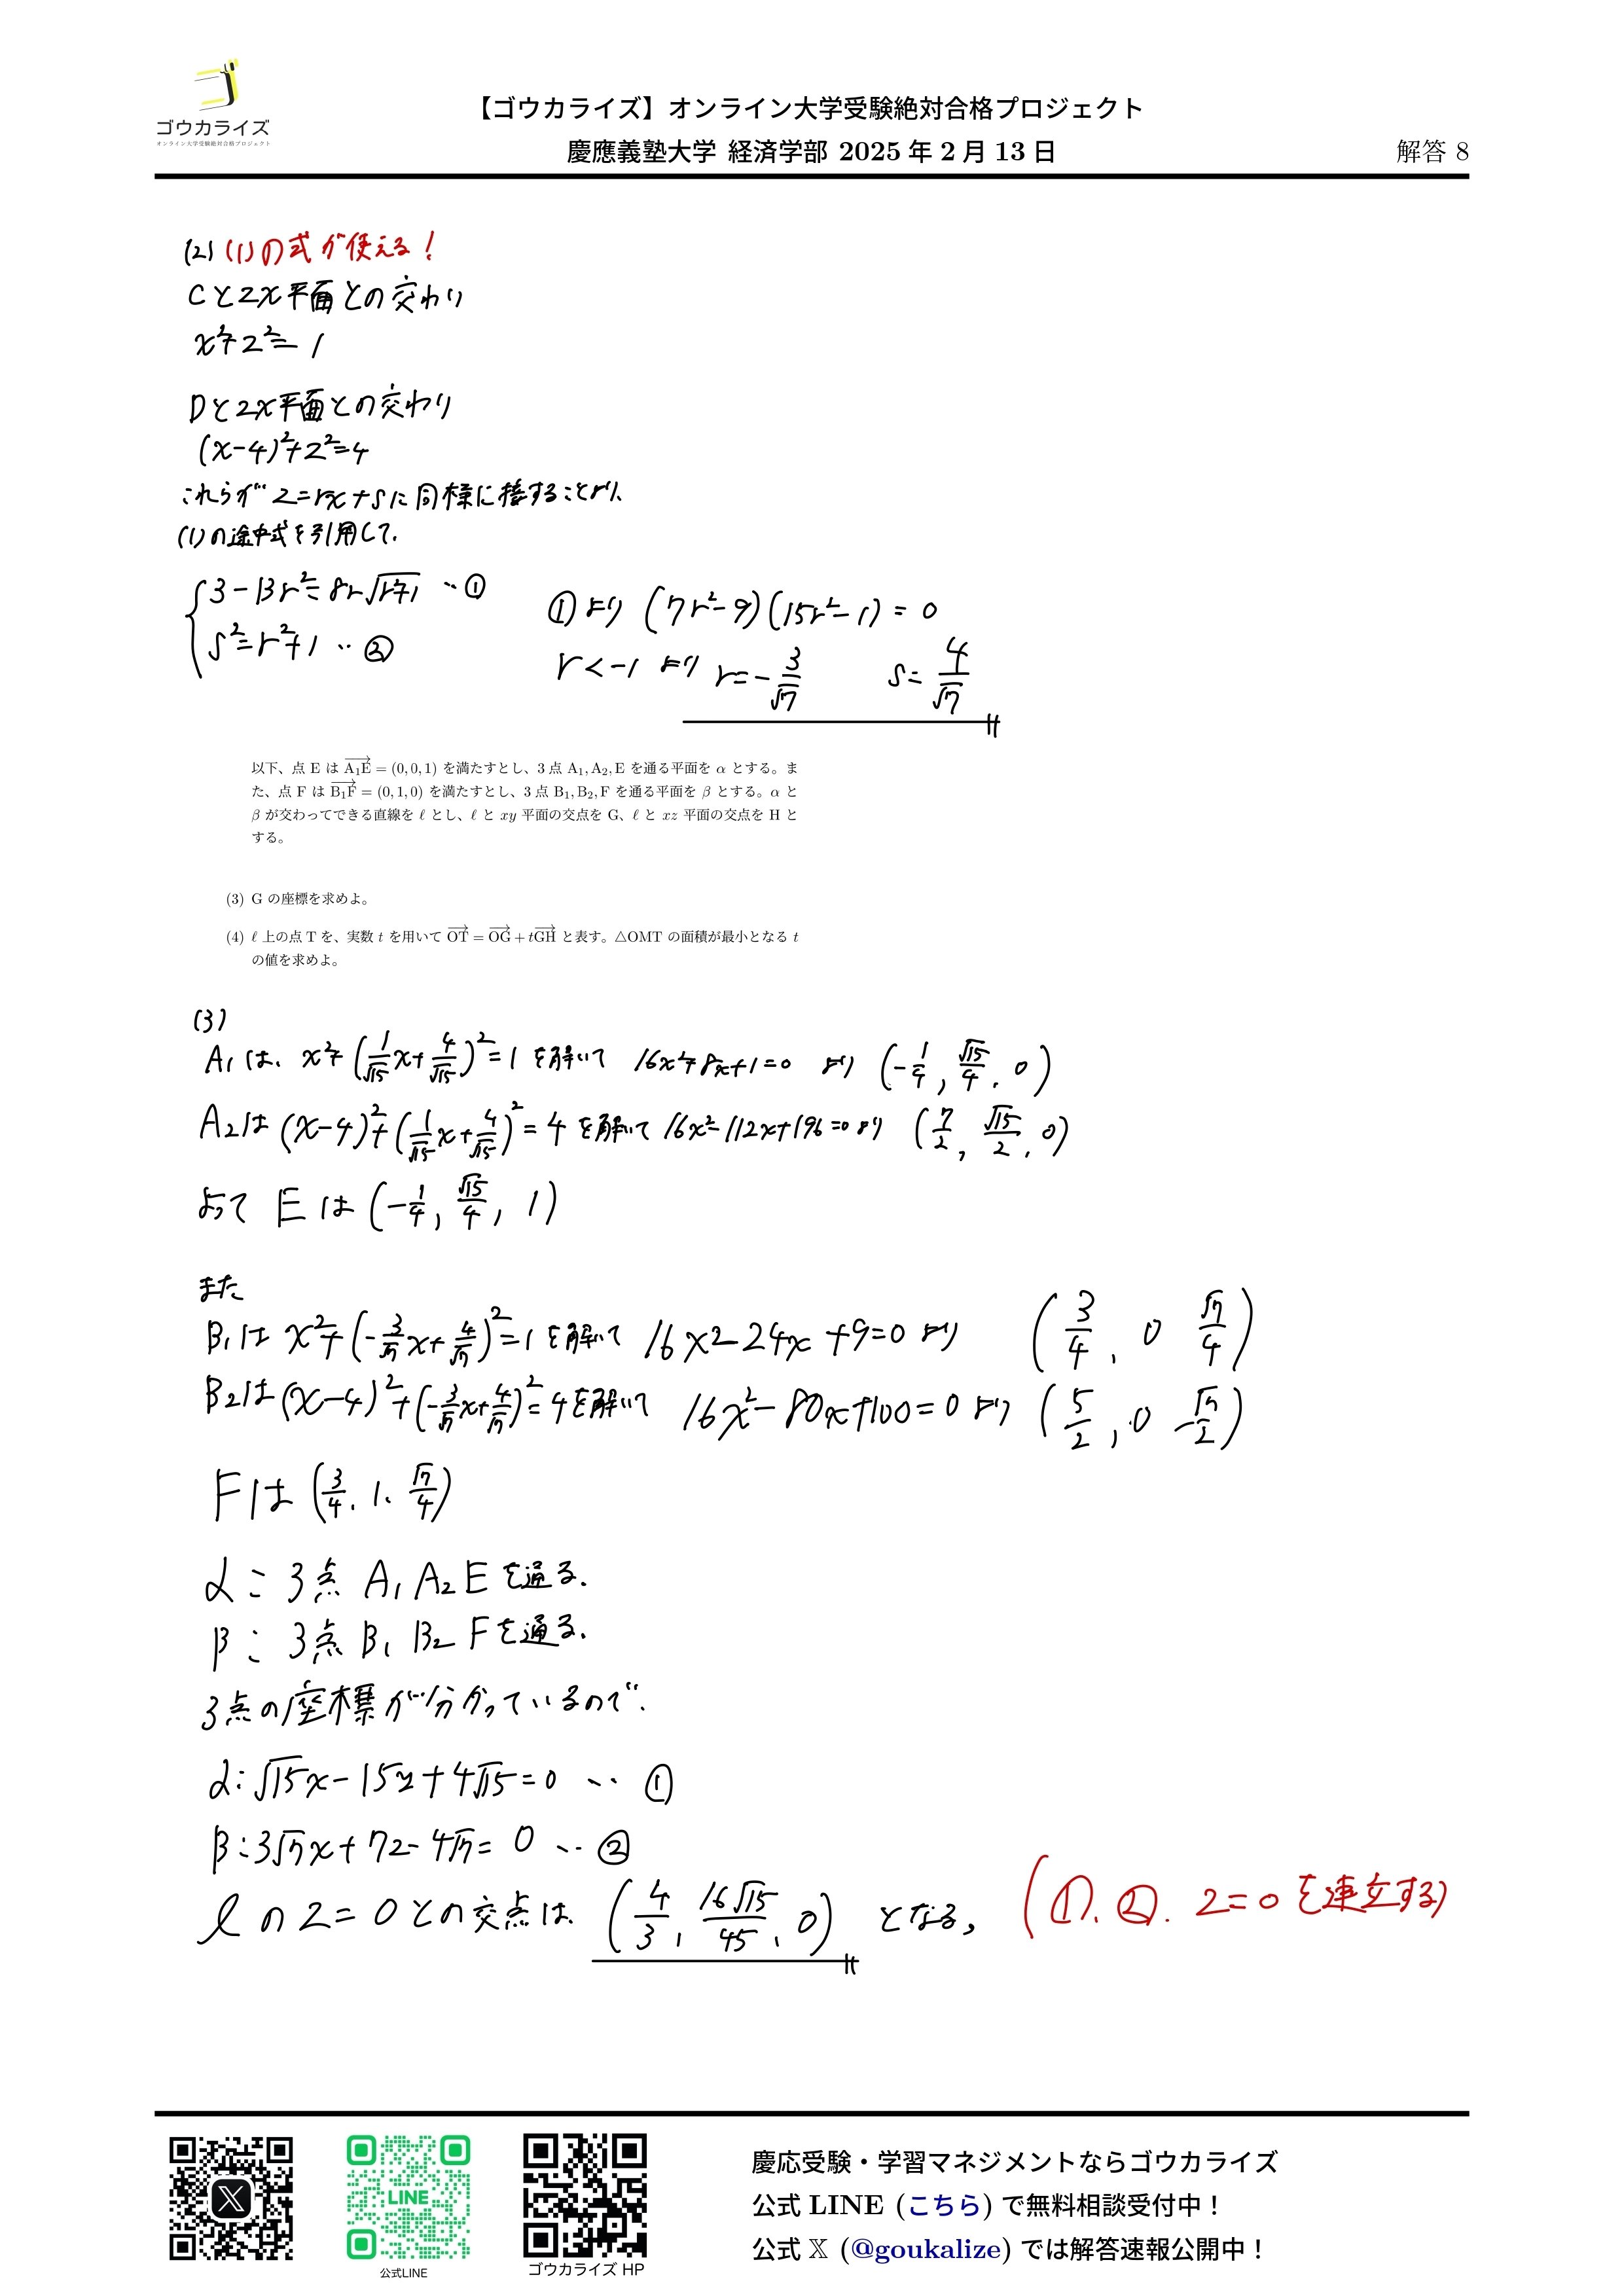 ゴウカライズ
オンライン大学受験絶対合格プロジェクト
【ゴウカライズ】オンライン大学受験絶対合格プロジェクト
慶應義塾大学 経済学部 2025 年 2 月 13 日
解答 8
(2) (1)の式が使える!
Cとzx平面との交わり
x²+z²=1
Dとzx平面との交わり
(x-4)²+z²=4
これらが z=rx+sに同様に接することより、
(1)の途中式を引用して、
3-13r²=8r√(r²+1) … ①
s²=r²+1 … ②
①より (7r²-9)(15r²-1)=0
r<-1 より r=-3/√7 s=4/√7
以下、点 E は A₁E = (0, 0, 1) を満たすとし、3 点 A₁, A₂, E を通る平面を α とする。ま
た、点 F は B₁F = (0, 1, 0) を満たすとし、3 点 B₁, B₂, F を通る平面を β とする。α と
β が交わってできる直線を ℓ とし、ℓ と xy 平面の交点を G、ℓ と xz 平面の交点を H と
する。
(3) G の座標を求めよ。
(4) ℓ 上の点 T を、実数 t を用いて OT = OG + tGH と表す。△OMT の面積が最小となる t
の値を求めよ。
(3)
A₁は、x²+(1/√15 x+4/√15)²=1 を解いて 16x²+8x+1=0 より (-1/4, √15/4, 0)
A₂は (x-4)²+(1/√15 x+4/√15)²=4 を解いて 16x²-112x+196=0より (7/2, √15/2, 0)
よって Eは (-1/4, √15/4, 1)
また
B₁は x²+(-3/√7 x+4/√7)²=1を解いて 16x²-24x+9=0 より (3/4, 0 √7/4)
B₂は (x-4)²+(-3/√7 x+4/√7)²=4を解いて 16x²-80x+100=0より (5/2, 0 -√7/2)
Fは (3/4, 1, √7/4)
α: 3点 A₁ A₂ Eを通る.
β: 3点 B₁ B₂ Fを通る.
3点の座標が分かっているので、
α:√15x-15y+4√15=0 … ①
β:3√7x+7z-4√7=0 … ②
ℓのz=0との交点は、(4/3, 16√15/45, 0) となる,
(①、②、z=0を連立する)
LINE
公式LINE
ゴウカライズ HP
慶応受験・学習マネジメントならゴウカライズ
公式 LINE (こちら) で無料相談受付中！
公式 𝕏 (@goukalize) では解答速報公開中！